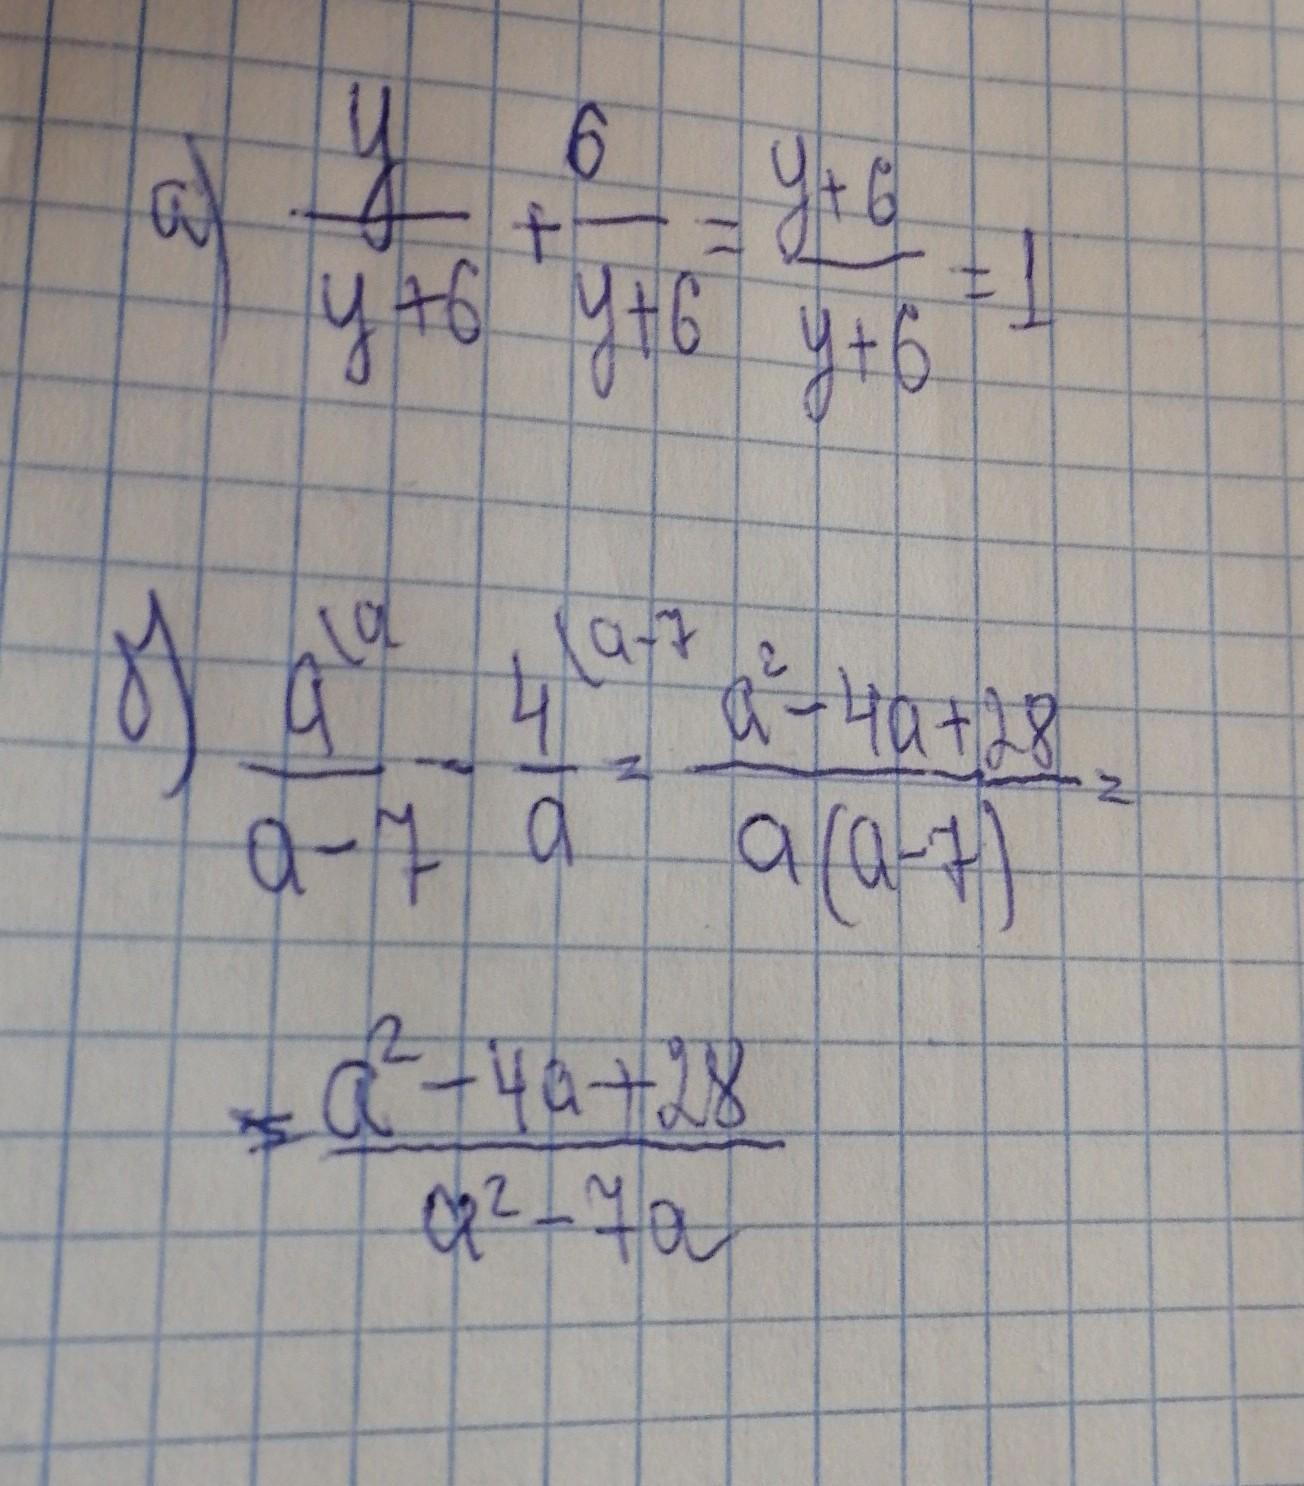 а) y/(y+6) + 6/(y+6) = (y+6)/(y+6) = 1
б) a\a/(a-7) - 4\a-7/a = (a²-4a+28)/(a(a-7)) =
= (a²-4a+28)/(a²-7a)